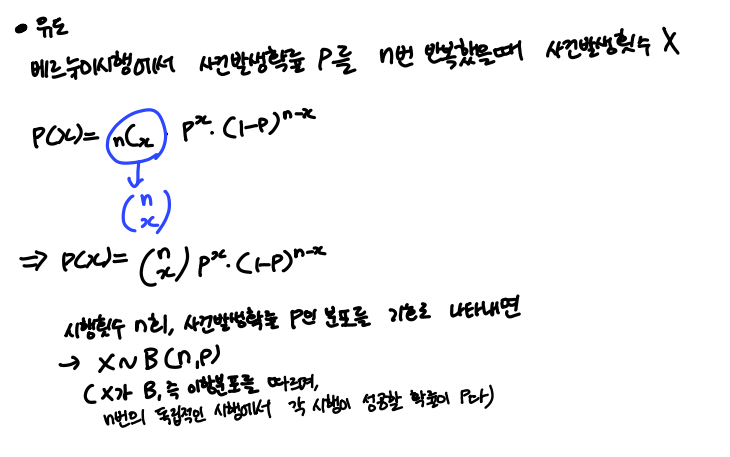 • 유도
베르누이시행에서 사건발생확률 P를 n번 반복했을때 사건발생횟수 X
P(x)= nCx · p^x · (1-p)^n-x
↓
(n x)
⇒ P(x)= (n x) p^x · (1-p)^n-x
시행횟수 n회, 사건발생확률 p인 분포를 기호로 나타내면
→ X ~ B(n,p)
(X가 B, 즉 이항분포를 따르며,
n번의 독립적인 시행에서 각 시행이 성공할 확률이 P다)